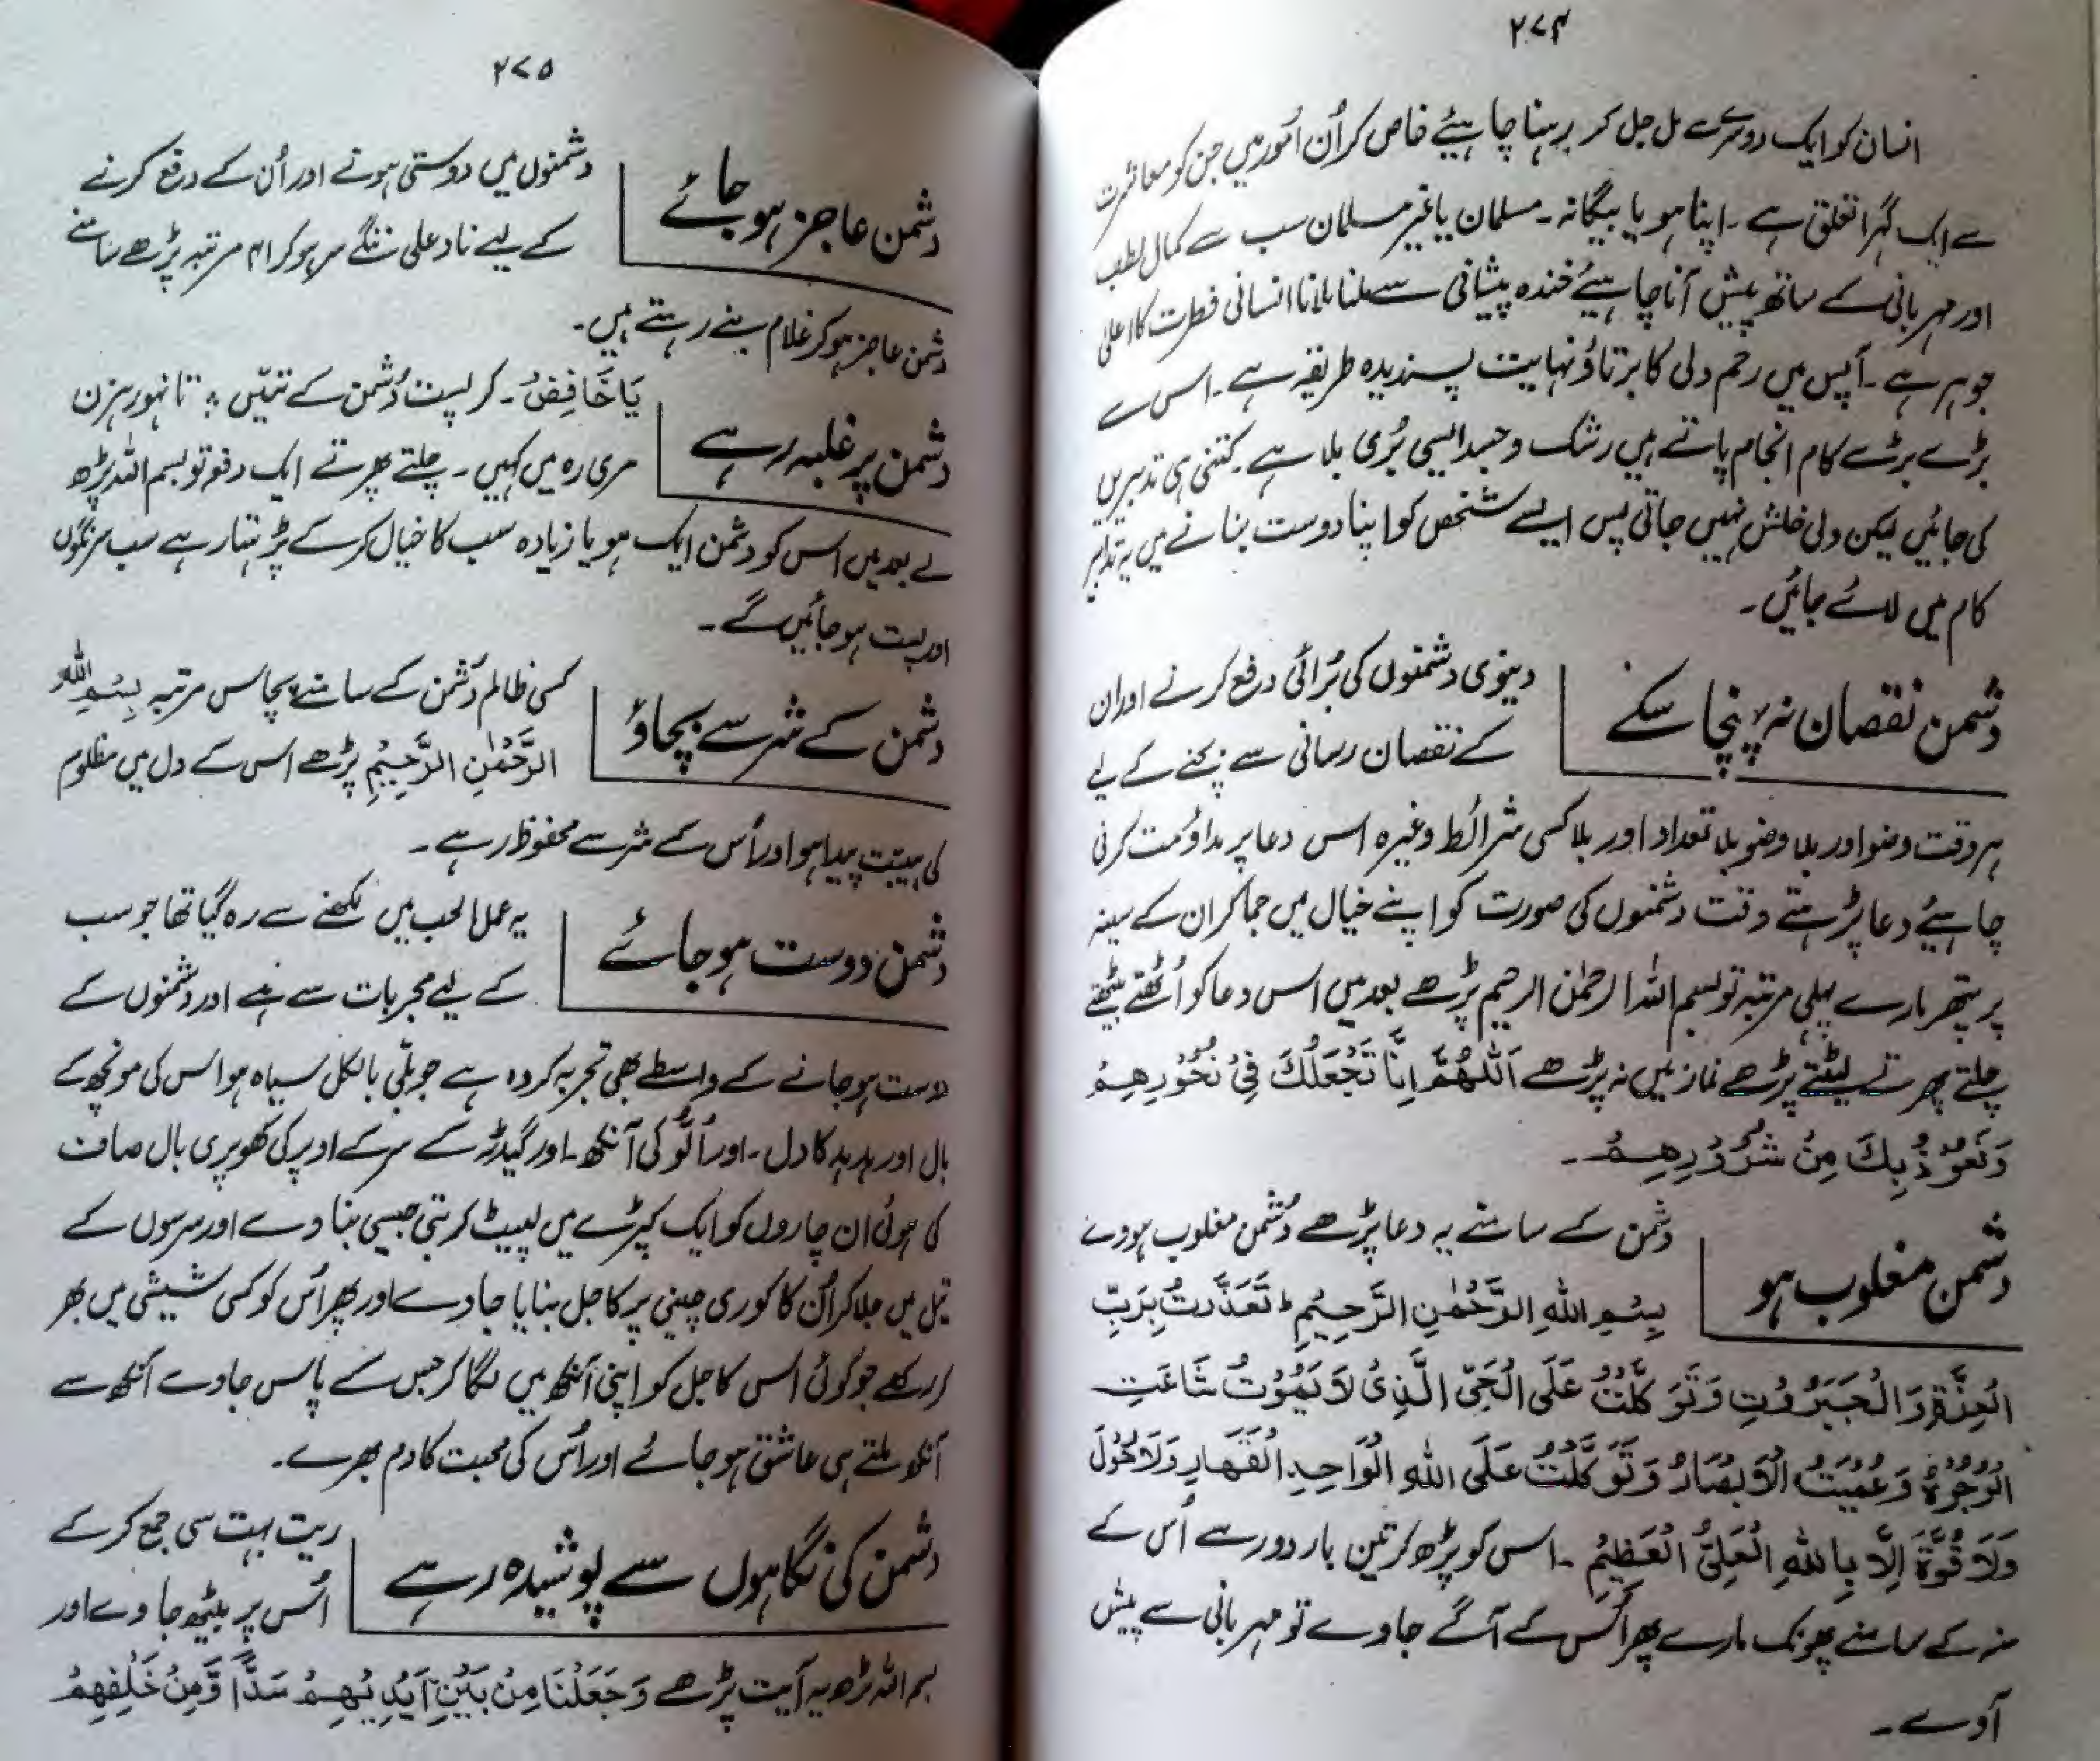 ۲۷۴
انسان کو ایک دوسرے سے مل جل کر رہنا چاہیئے خاص کر اُن اُمور میں جن کو معاشرت
سے ایک گہرا تعلق ہے ۔ اپنا ہو یا بیگانہ ۔ مسلمان یا غیر مسلمان سب سے کمال لطف
اور مہربانی کے ساتھ پیش آنا چاہیئے خندہ پیشانی سے ملنا ملانا انسانی فطرت کا اعلیٰ
جوہر ہے ۔ آپس میں رحم دلی کا برتاؤ نہایت پسندیدہ طریقہ ہے ۔ اسی سے
بڑے بڑے کام انجام پاتے ہیں رشک و حسد ایسی بُری بلا ہے ۔ کتنی ہی تدبیریں
کی جائیں لیکن دلی خلش نہیں جاتی پس ایسے شخص کو اپنا دوست بنانے میں یہ تدابیر
کام میں لائے جائیں ۔
دشمن نقصان نہ پہنچا سکے
دینوی دشمنوں کی بُرائی دفع کرنے اور ان
کے نقصان رسانی سے بچنے کے لیے
ہر وقت وضو اور بلا وضو بلا تعداد اور بلا کسی شرائط وغیرہ اس دعا پر مداومت کرنی
چاہیئے دعا پڑھتے وقت دشمنوں کی صورت کو اپنے خیال میں جما کر ان کے سینہ
پر پتھر مارے پہلی مرتبہ تو بسم اللہ الرحمٰن الرحیم پڑھے بعد میں اس دعا کو اُٹھتے بیٹھتے
چلتے پھرتے لیٹتے پڑھے نماز میں نہ پڑھے اَللّٰھُمَّ اِنَّا نَجْعَلُكَ فِیْ نُحُوْرِھِمْ
وَنَعُوْذُ بِكَ مِنْ شُرُوْرِھِمْ ۔
دشمن مغلوب ہو
دشمن کے سامنے یہ دعا پڑھے دُشمن مغلوب ہووے
بِسْمِ اللهِ الرَّحْمٰنِ الرَّحِیْمِ ط تَعَذَّرتُ بِرَبِّ
الْعِزَّةِ وَالْجَبَرُوْتِ وَتَوَكَّلْتُ عَلَی الْحَیِّ الَّذِیْ لَا یَمُوْتُ شَاھَتِ
الْوُجُوْهُ وَعُمِیَتُ الْاَبْصَارُ وَتَوَكَّلْتُ عَلَی اللهِ الْوَاحِدِ الْقَهَارِ وَلَا حُوْلَ
وَلَا قُوَّةَ اِلَّا بِاللهِ الْعَلِیُّ الْعَظِیْمُ ۔ اس کو پڑھ کر تین بار دور سے اُس کے
منہ کے سامنے پھونک مارے پھر اُس کے آگے جاوے تو مہربانی سے پیش
آوے ۔
۲۷۵
دشمن عاجز ہو جائے
دشمنوں میں دوستی ہونے اور اُن کے دفع کرنے
کے لیے ناد علی ننگے سر ہو کر ۴۱ مرتبہ پڑھے سامنے
دشمن عاجز ہو کر غلام بنے رہتے ہیں ۔
دشمن پر غلبہ رہے
یَا خَافِضُ ۔ کر پست دُشمن کے تئیں ؛ تا نہو رہزن
مری رہ میں کہیں ۔ چلتے پھرتے ایک دفعہ تو بسم اللہ پڑھ
لے بعد میں اس کو دشمن ایک ہو یا زیادہ سب کا خیال کر کے پڑھتا رہے سب سرنگوں
اور پست ہو جائیں گے ۔
دشمن کے شر سے بچاؤ
کسی ظالم دشمن کے سامنے پچاس مرتبہ بِسْمِ اللهِ
الرَّحْمٰنِ الرَّحِیْمِ پڑھے اس کے دل میں مظلوم
کی ہیبت پیدا ہو اور اُس کے شر سے محفوظ رہے ۔
دشمن دوست ہو جائے
یہ عمل الحب میں لکھنے سے رہ گیا تھا جو سب
کے لیے مجربات سے ہے اور دشمنوں کے
دوست ہو جانے کے واسطے بھی تجربہ کردہ ہے جو بلّی بالکل سیاہ ہو اس کی مونچھ کے
بال اور ہد ہد کا دل ۔ اور اُلّو کی آنکھ ۔ اور گیدڑ کے سر کے اوپر کی کھوپری بال صاف
کی ہوئی ان چاروں کو ایک کپڑے میں لپیٹ کر بتی جیسی بنا دے اور سرسوں کے
تیل میں جلا کر اُن کا کوری چینی پر کاجل بنایا جاوے اور پھر اُس کو کسی شیشی میں بھر
کر رکھے جو کوئی اس کاجل کو اپنی آنکھ میں لگا کر جس کے پاس جاوے آنکھ سے
آنکھ ملتے ہی عاشق ہو جائے اور اُس کی محبت کا دم بھرے ۔
دشمن کی نگاہوں سے پوشیدہ رہے
ریت بہت سی جمع کر کے
اُس پر بیٹھ جاوے اور
بسم اللہ پڑھ یہ آیت پڑھے وَجَعَلْنَا مِنْ بَیْنِ اَیْدِیْهِمْ سَدًّا وَّمِنْ خَلْفِهِمْ